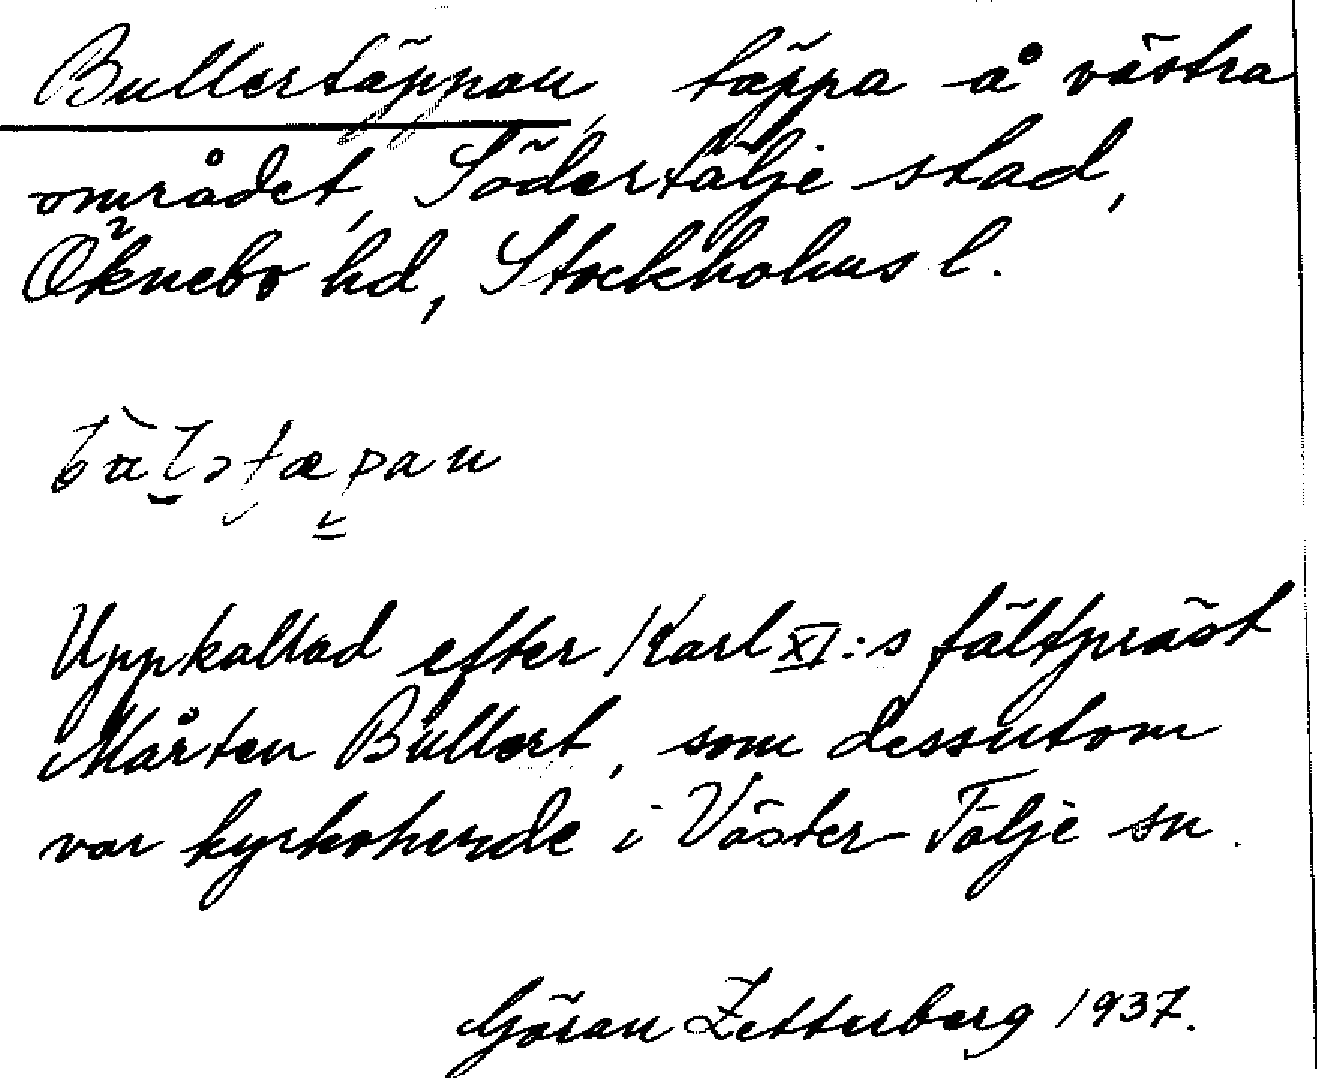 Bullertäppan, täppa å västra
området, Södertälje stad,
Öknebo hd, Stockholms l.
Uppkallad efter Karl XI:s fältpräst
Mårten Bullert, som dessutom
var kyrkoherde i Väster-Tälje sn.
Göran Zetterberg 1937.